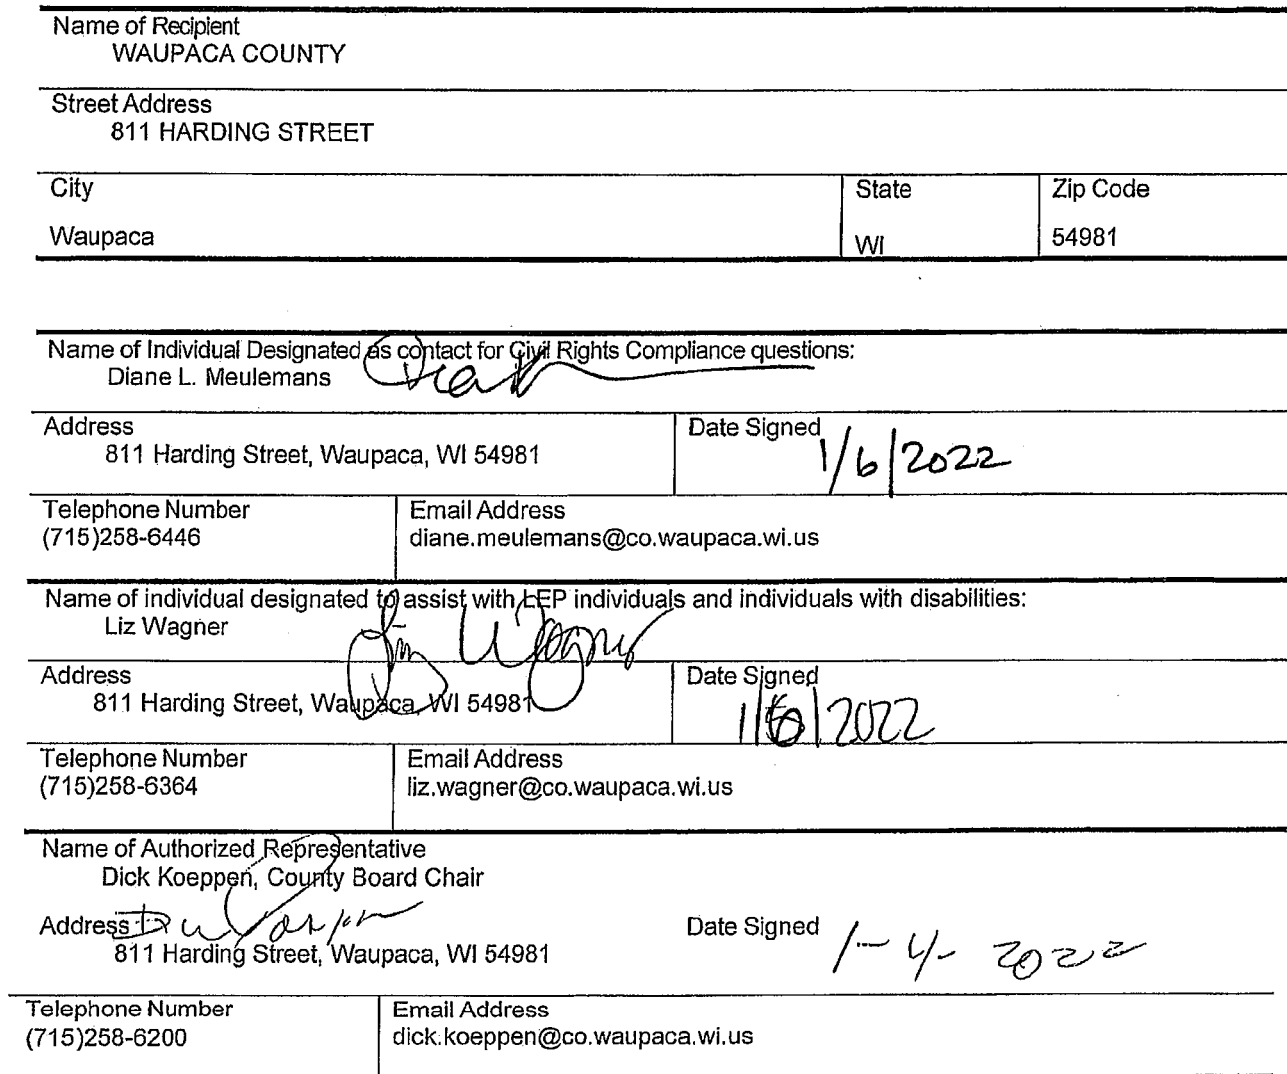 Name of Recipient
WAUPACA COUNTY
Street Address
811 HARDING STREET
City State Zip Code
Waupaca WI 54981
Name of Individual Designated as contact for Civil Rights Compliance questions:
Diane L. Meulemans
Address Date Signed
811 Harding Street, Waupaca, WI 54981 1/6/2022
Telephone Number Email Address
(715)258-6446 diane.meulemans@co.waupaca.wi.us
Name of individual designated to assist with LEP individuals and individuals with disabilities:
Liz Wagner
Liz Wagner
Address Date Signed
811 Harding Street, Waupaca, WI 54981 1/6/2022
Telephone Number Email Address
(715)258-6364 liz.wagner@co.waupaca.wi.us
Name of Authorized Representative
Dick Koeppen, County Board Chair
Address Date Signed
811 Harding Street, Waupaca, WI 54981 1-4-2022
Telephone Number Email Address
(715)258-6200 dick.koeppen@co.waupaca.wi.us